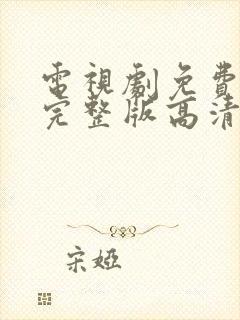 電視劇免費
完整版高清
宋婭